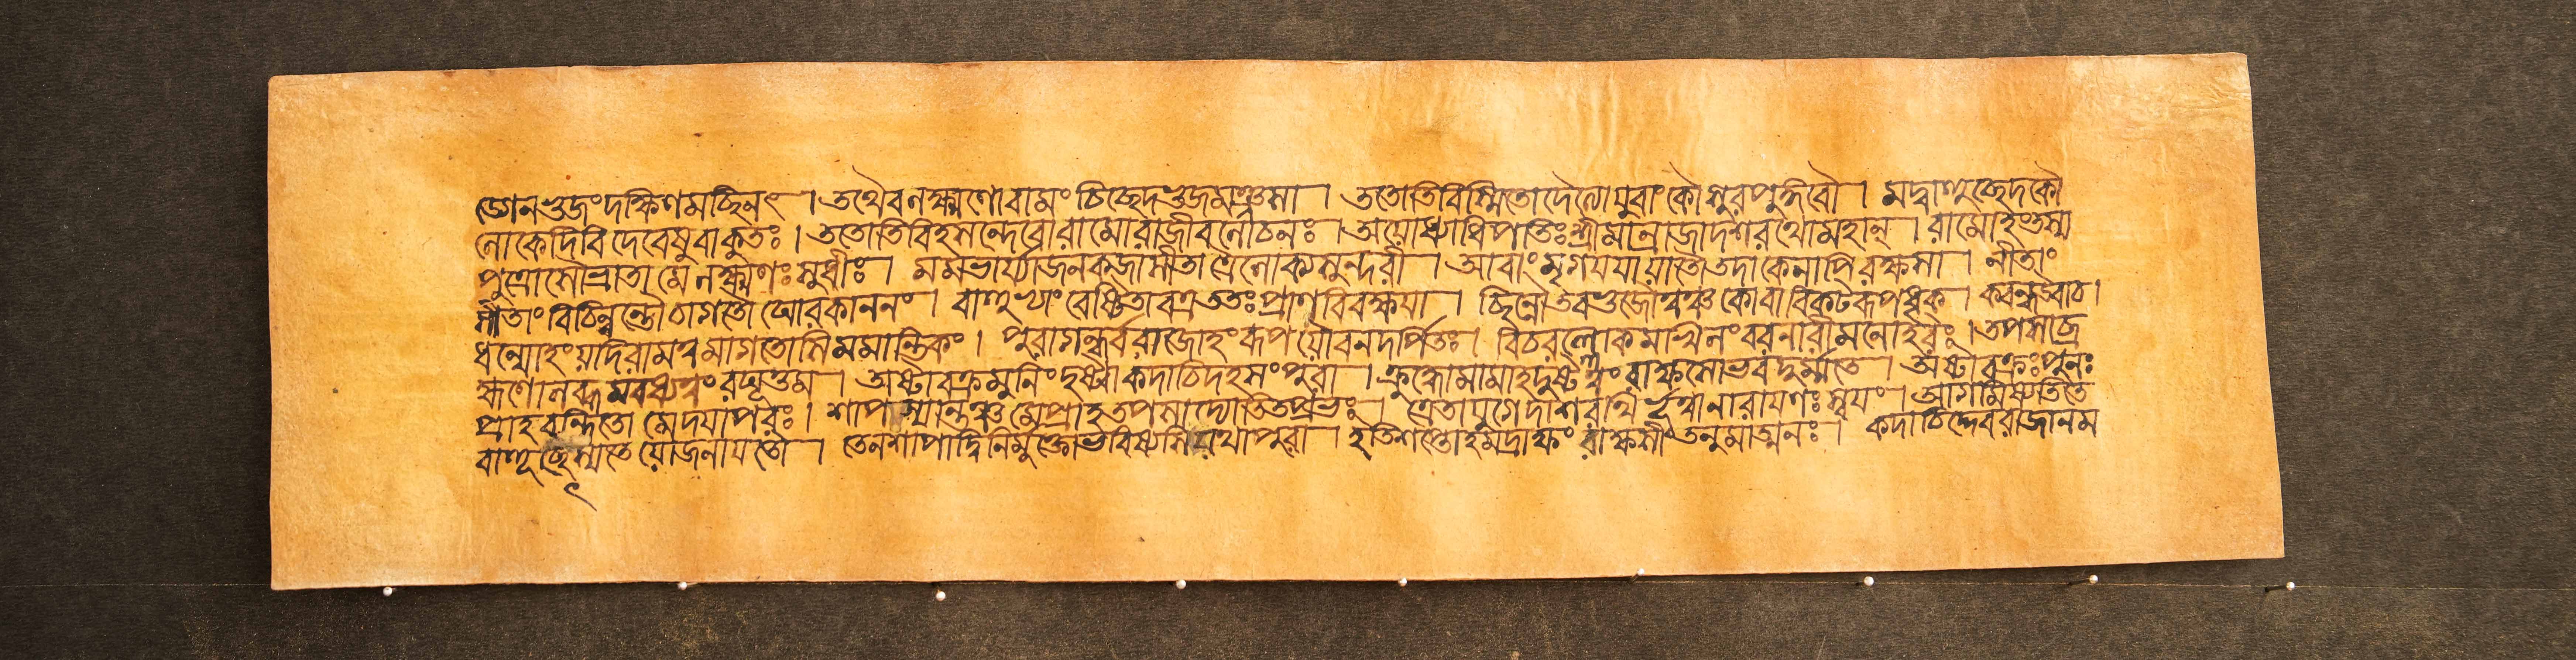 ড্গেনভুজং দক্ষিণমচ্ছিনৎ । তথৈবলক্ষ্মণো বামং চিচ্ছেদভুজমঞ্জসা । ততোতিবিস্মিতো দৈত্যো যুবাং কৌ সুরপুঙ্গবৌ । মদ্বাহুচ্ছেদকৌ
লোকে দিবি দেবেষু বা কুতঃ । ততোব্রবীদ্ধসন্দেবো রামো রাজীবলোচনঃ । অযোধ্যাধিপতিঃ শ্রীমান্রাজা দশরথো মহান্ । রামোহং তস্য
পুত্রোসৌ ভ্রাতা মে লক্ষ্মণঃ সুধীঃ । মম ভার্য্যা জনকজা সীতা ত্রৈলোক্যসুন্দরী । আবাং মৃগযযা যাতৌ তদা কেনাপি রক্ষসা । নীতাং
সীতাং বিচিন্বন্তৌ চাগতৌ ঘোরকাননং । বাহুভ্যাং বেষ্টিতাবত্র ততঃ প্রাণরিরক্ষযা । ছিন্নৌ তব ভুজৌ ত্বঞ্চ কো বা বিকটরূপধৃক্ । কবন্ধউবাচ ।
ধন্যোহং যদি রামত্বমাগতোসি মমান্তিকং । পুরা গন্ধর্বরাজোহং রূপযৌবনদর্পিতঃ । বিচরল্লোকমখিলং বরনারীমনোহরঃ । তপসা ব্র
হ্মণো লব্ধমবধ্যত্বং রঘূত্তম । অষ্টাবক্রমুনিং দৃষ্ট্বা কদাচিদহসং পুরা । ক্রুদ্ধোসামাহ দুষ্ট ত্বং রাক্ষসো ভব দুর্মতে । অষ্টাবক্রঃ পুনঃ
প্রাহ বন্দিতো মে দযাপরঃ । শাপস্যান্তঞ্চ মে প্রাহ তপসা দ্যোতিতপ্রভঃ । ত্রেতাযুগে দাশরথির্ভূত্বা নারাযণঃ স্বযং । আগমিষ্যতি তে
বাহূ চ্ছিদ্যেতে যোজনাযতৌ । তেন শাপাদ্বিনির্মুক্তো ভবিষ্যসি যথা পুরা । ইতি শপ্তোহমদ্রাক্ষং রাক্ষসীং তনুমাত্মনঃ । কদাচিদ্দেবরাজানম